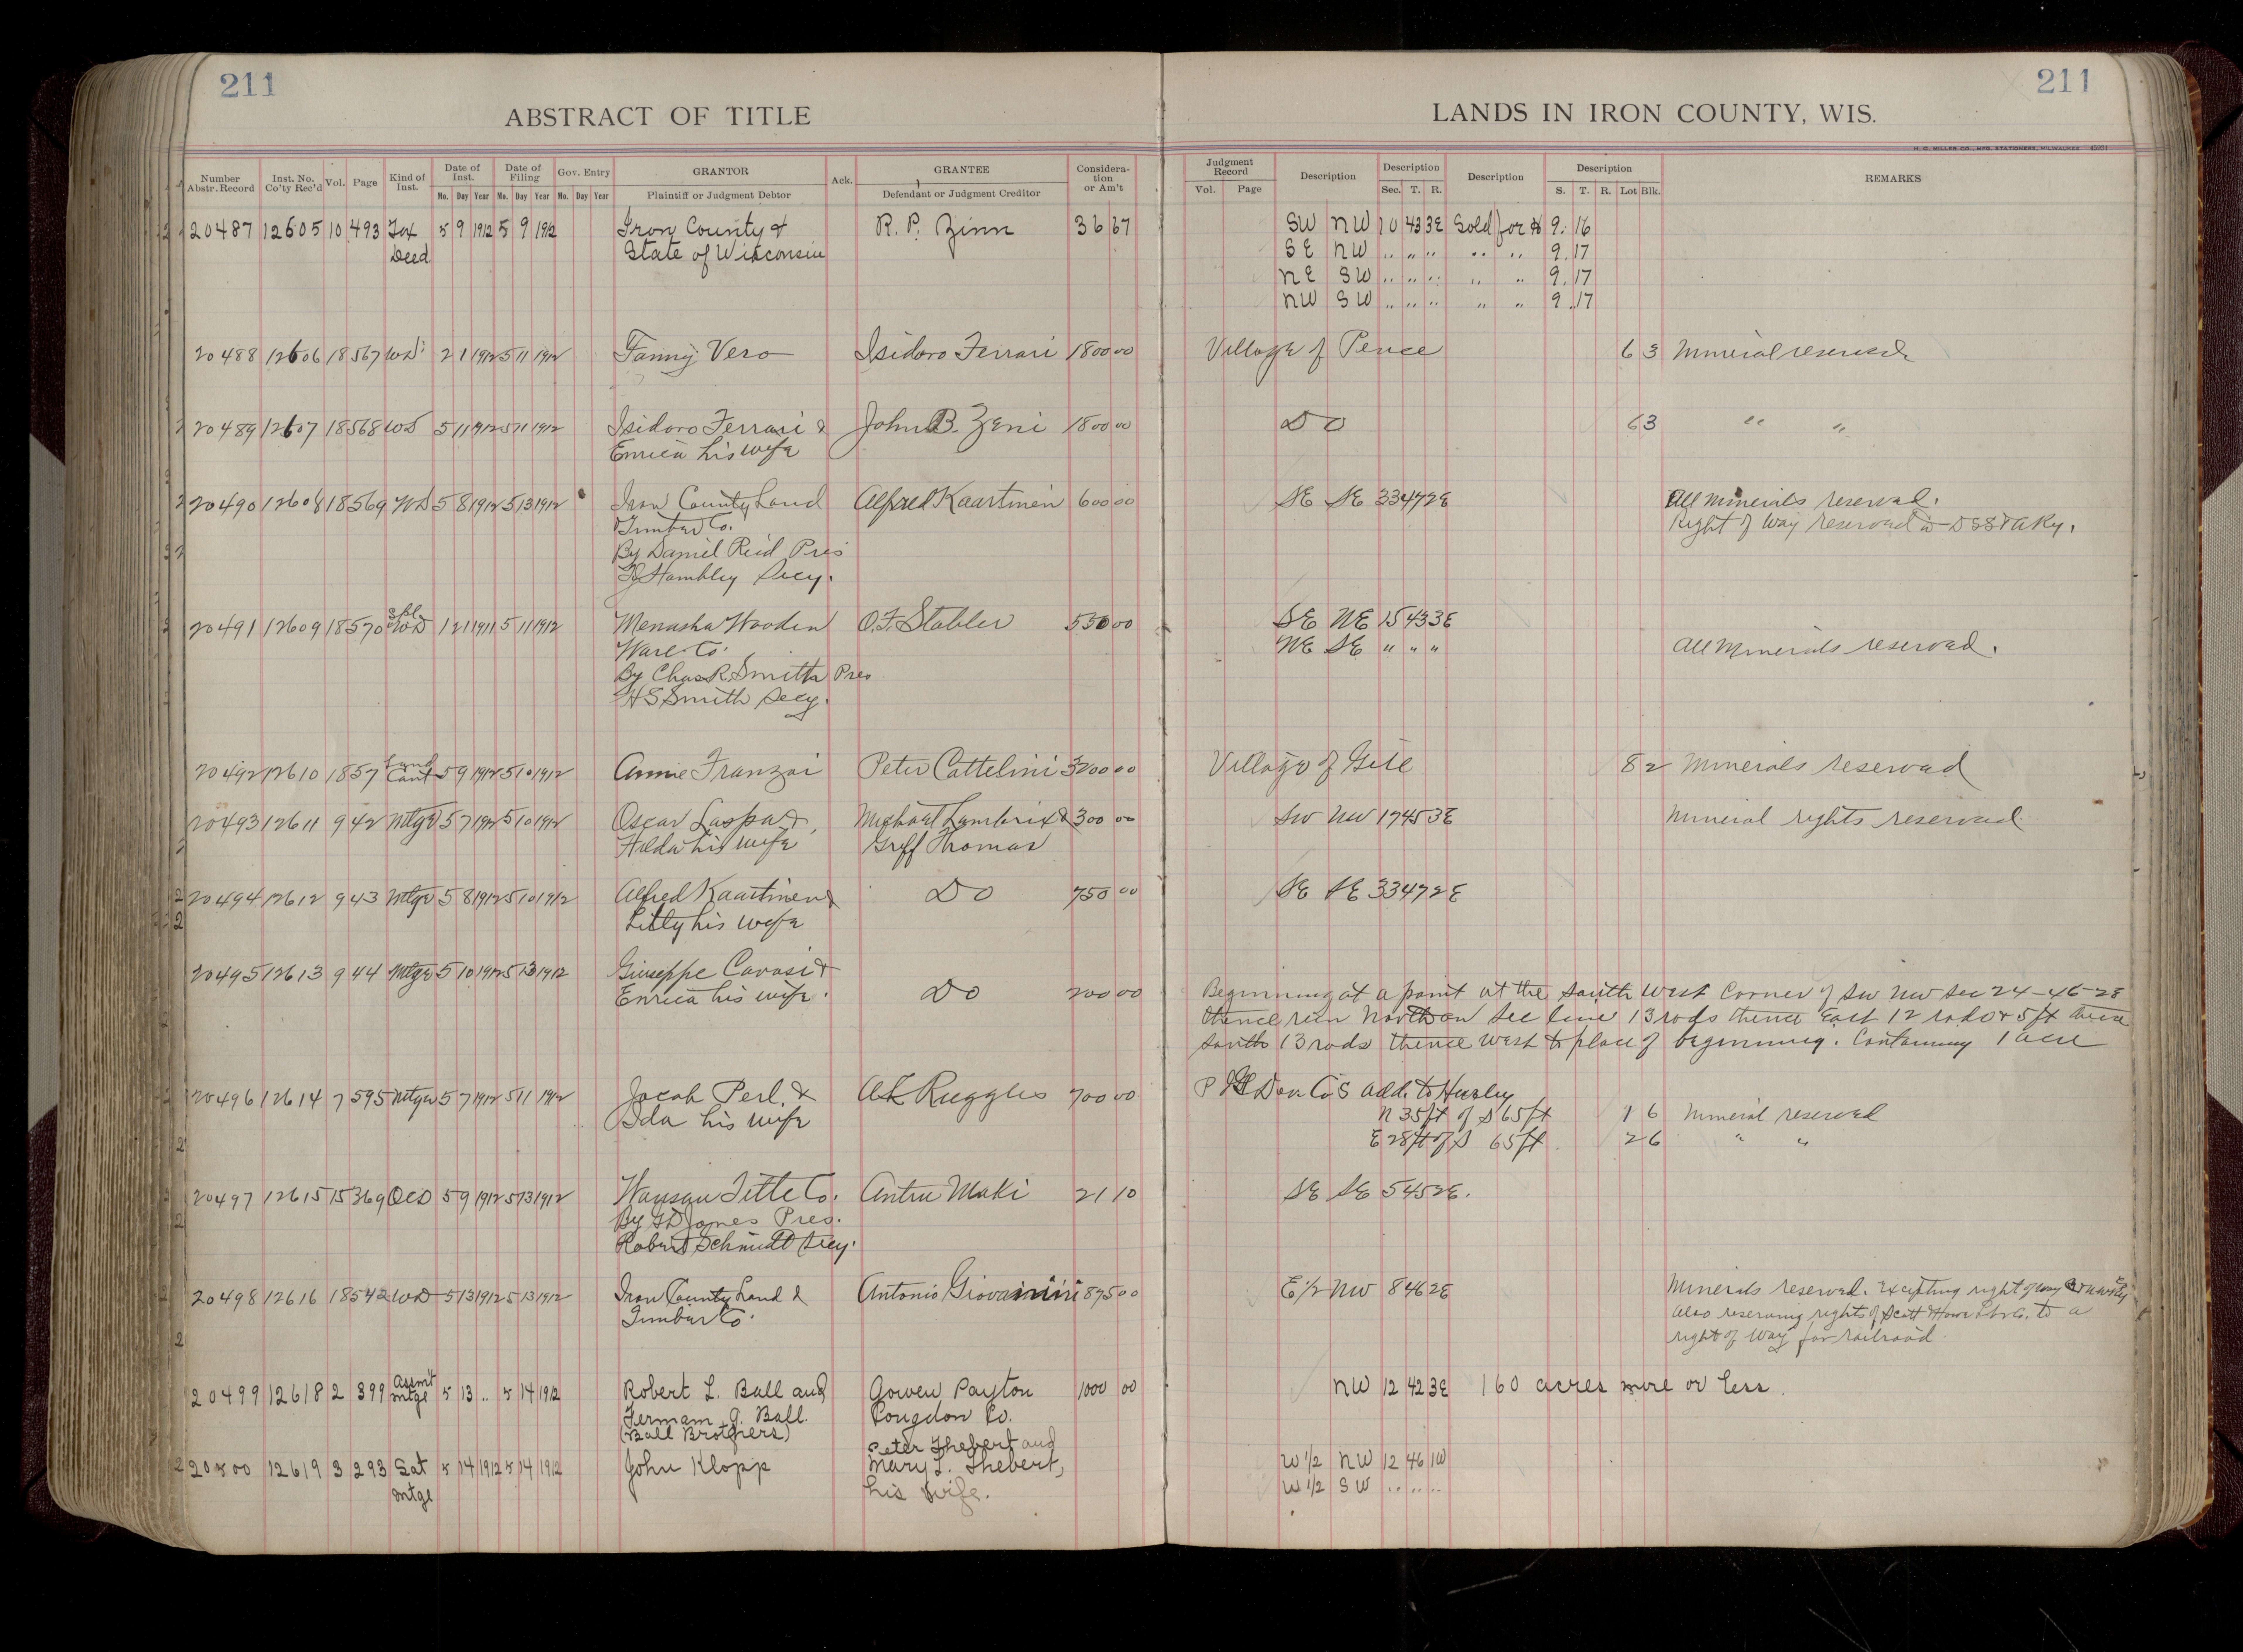 211
211
ABSTRACT OF TITLE
LANDS IN IRON COUNTY, WIS.
H. C. MILLER CO., MFG. STATIONERS, MILWAUKEE
Number Abstr. Record Inst. No. Co'ty Rec'd Vol. Page Kind of Inst. Date of Inst. Date of Filing Gov. Entry GRANTOR Ack. GRANTEE Consideration or Am't Judgment Record Description Description Description Description REMARKS
Mo. Day Year Mo. Day Year Mo. Day Year Plaintiff or Judgment Debtor Defendant or Judgment Creditor Vol. Page Sec. T. R. S. T. R. Lot Blk.
20487 12605 10 493 Tax 5 9 1912 5 9 1912 Iron County & R. P. Zinn 36 67 SW NW 10 43 3E Sold for $ 9.16
Deed State of Wisconsin SE NW " " " " " 9.17
NE SW " " " " " 9.17
NW SW " " " " " 9.17
20488 12606 18 567 WD 2 1 1912 5 11 1912 Fanny Vero Isidoro Ferrari 1800 00 Village of Pence 6 3 Mineral reserved
20489 12607 18 568 WD 5 11 1912 5 11 1912 Isidoro Ferrari & John B. Zeni 1800 00 DO 6 3 " "
Enrica his wife
20490 12608 18 569 WD 5 8 1912 5 13 1912 Iron County Land Alfred Kaartinen 600 00 SE SE 33 47 2E All minerals reserved.
& Timber Co. Right of Way reserved in DSS & A Ry.
By Daniel Reid Pres
Hambley Secy.
20491 12609 18 570 Spl WD 1 2 1 1911 5 11 1912 Menasha Wooden O.F. Stabler 550 00 SE NE 15 43 3E
Ware Co. NE SE " " " All Minerals reserved.
By Chas R. Smith Pres
H S Smith Secy.
20492 12610 18 57 Land Cont 5 9 1912 5 10 1912 Annie Franzoi Peter Cattelini 3200 00 Village of Gile 8 2 Minerals reserved
20493 12611 9 42 Mtge 5 7 1912 5 10 1912 Oscar & Michael Lambrix & 300 00 SW NW 17 45 3E Mineral rights reserved
Hilda his wife Griff Thomas
20494 12612 9 43 Mtge 5 8 1912 5 10 1912 Alfred Kaartinen & DO 750 00 SE SE 33 47 2E
Lilly his wife
20495 12613 9 44 Mtge 5 10 1912 5 13 1912 Giuseppe Cavasi &
Enrica his wife. DO 200 00 Beginning at a point at the South West Corner of SW NW Sec 24-46-2E
thence run North on Sec line 13 rods thence East 12 rods & 5 ft thence
South 13 rods thence West to place of beginning. Containing 1 acre
20496 12614 7 595 Mtge 5 7 1912 5 11 1912 Jacob Perl & A L Ruggles 700 00 Dev Co's Add. to Hurley
Ida his wife N 35 ft of S 65 ft 1 6 Mineral reserved
E 28 ft of S 65 ft 2 6 " "
20497 12615 15 369 QCD 5 9 1912 5 13 1912 Wausau Title Co. Antru Maki 21 10 SE SE 5 45 2E.
By G D Jones Pres.
Robert Schmidt Secy.
20498 12616 18 542 WD 5 13 1912 5 13 1912 Iron County Land & Antonio Giovanini 895 00 E 1/2 NW 8 46 2E Minerals reserved. Excepting right of way C & N W Ry
Timber Co. Also reserving rights of Scott & Howe Lbr Co. to a
right of way for railroad
20499 12618 2 399 Assmt Mtge 5 13 " 5 14 1912 Robert L. Ball and Gowen Payton 1000 00 NW 12 42 3E 160 acres more or less.
Fermam G. Ball. Pougdon Co.
(Ball Brothers)
20500 12619 3 293 Sat 5 14 1912 5 14 1912 John Klopp Peter Thebert and W 1/2 NW 12 46 1W
Mtge Mary L. Thebert, W 1/2 SW " " "
his wife.